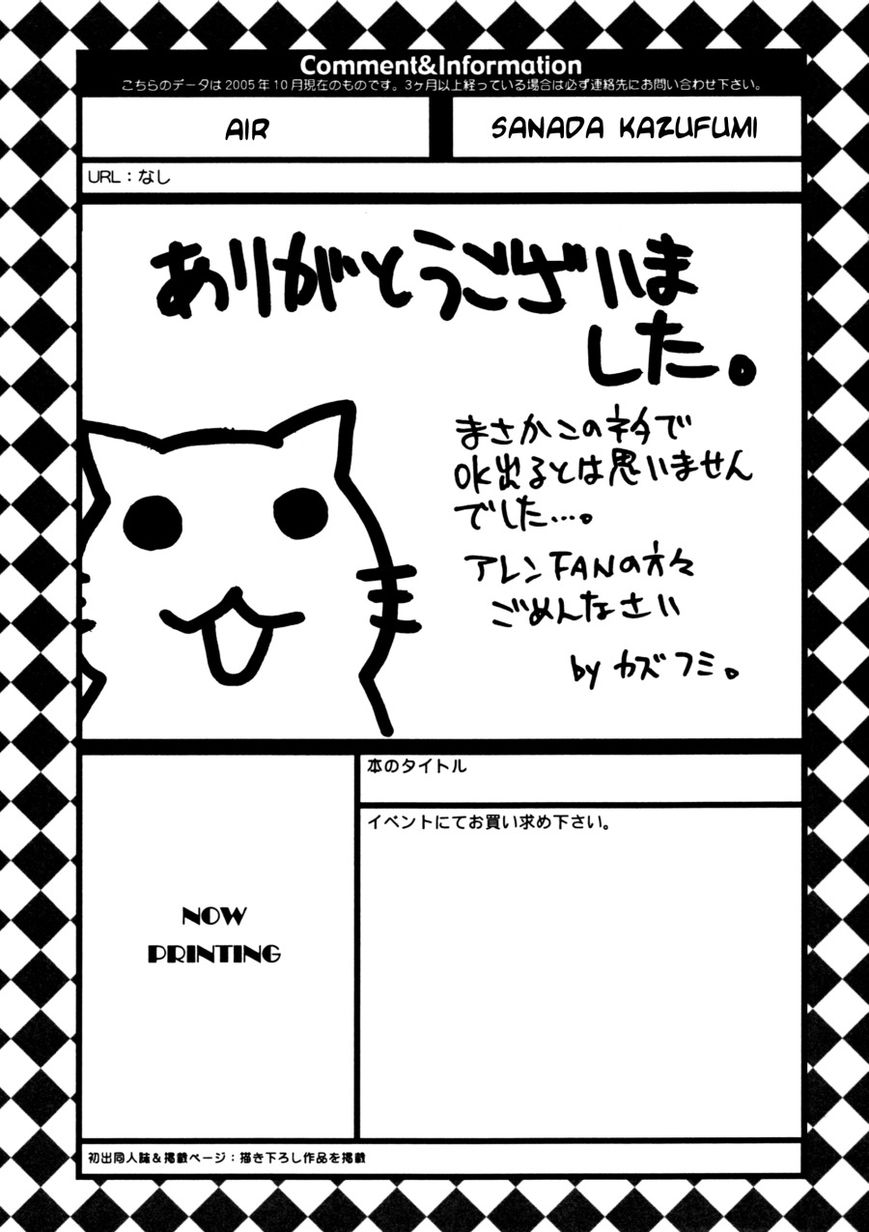 Comment&Information
こちらのデータは2005年10月現在のものです。3ヶ月以上経っている場合は必ず連絡先にお問い合わせ下さい。
AIR
SANADA KAZUFUMI
URL：なし
ありがとうございま
した。
まさかこのネタで
OK出るとは思いません
でした…。
アレンFANの方々
ごめんなさい
by カズフミ。
本のタイトル
イベントにてお買い求め下さい。
NOW
PRINTING
初出同人誌＆掲載ページ：描き下ろし作品を掲載